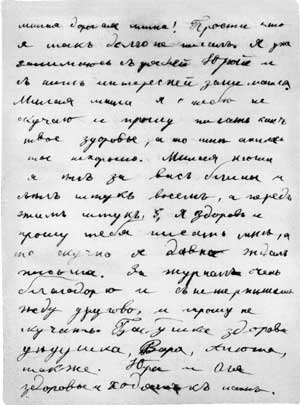 милая дорогая мама! Прости что
я такъ долго не писалъ. Я уже
занимаюсь съ дядей Юрой и
съ нимъ интересней заниматся.
Милая мама я о тебѣ не
скучаю и прошу писать какъ
твое здоровье, а то мнѣ
ты нехорошо. Милая
я ѣлъ за весь блины и
съѣлъ штукъ восемъ, а передъ
этимъ штукъ 5, я здоровъ и
прошу тебя писать мнѣ, а
то скучно я давно ждалъ
письма. За журналъ очень
благодарю и съ нетерпѣниемъ
жду другово, и прошу не
скучать. Бабушка здорова
дядушка, Вара, Анюта,
также. Юра и Оля
здоровы и ходятъ къ намъ.